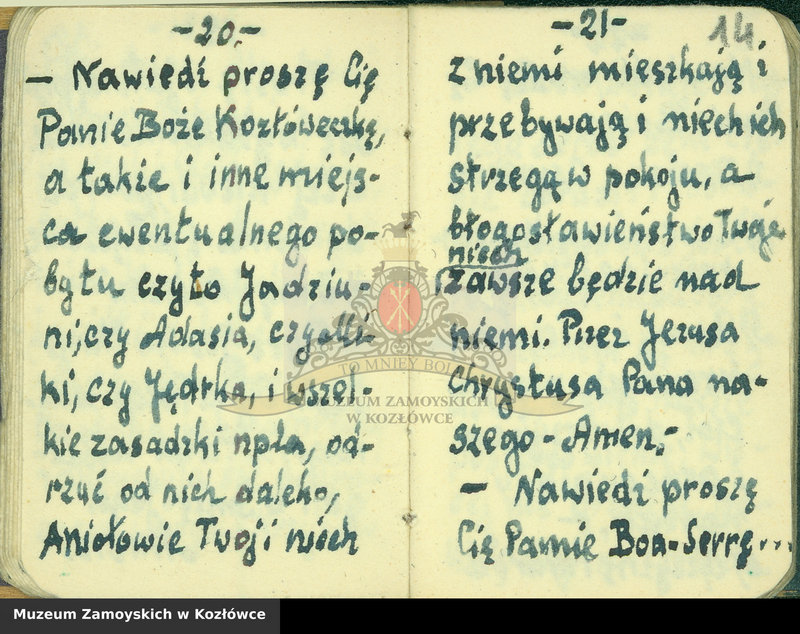 -20.-
— Nawiedź proszę Cię
Panie Boże Kozłóweczkę,
a także i inne miejs-
ca ewentualnego po-
bytu czyto Jadziu-
ni, czy Adasia, czy Elli-
ki, czy Jędrka, i wszel-
kie zasadzki npła, od-
rzuć od nich daleko,
Aniołowie Twoji niech
-21-
14
z niemi mieszkają i
przebywają i niech ich
strzegą w pokoju, a
błogosławieństwo Twoje
niech
zawsze będzie nad
niemi. Przez Jezusa
Chrystusa Pana na-
szego - Amen.-
— Nawiedź proszę
Cię Panie Boa-Serrę...
TO MNIEY BOLI
MUZEUM ZAMOYSKICH
W KOZŁÓWCE
Muzeum Zamoyskich w Kozłówce